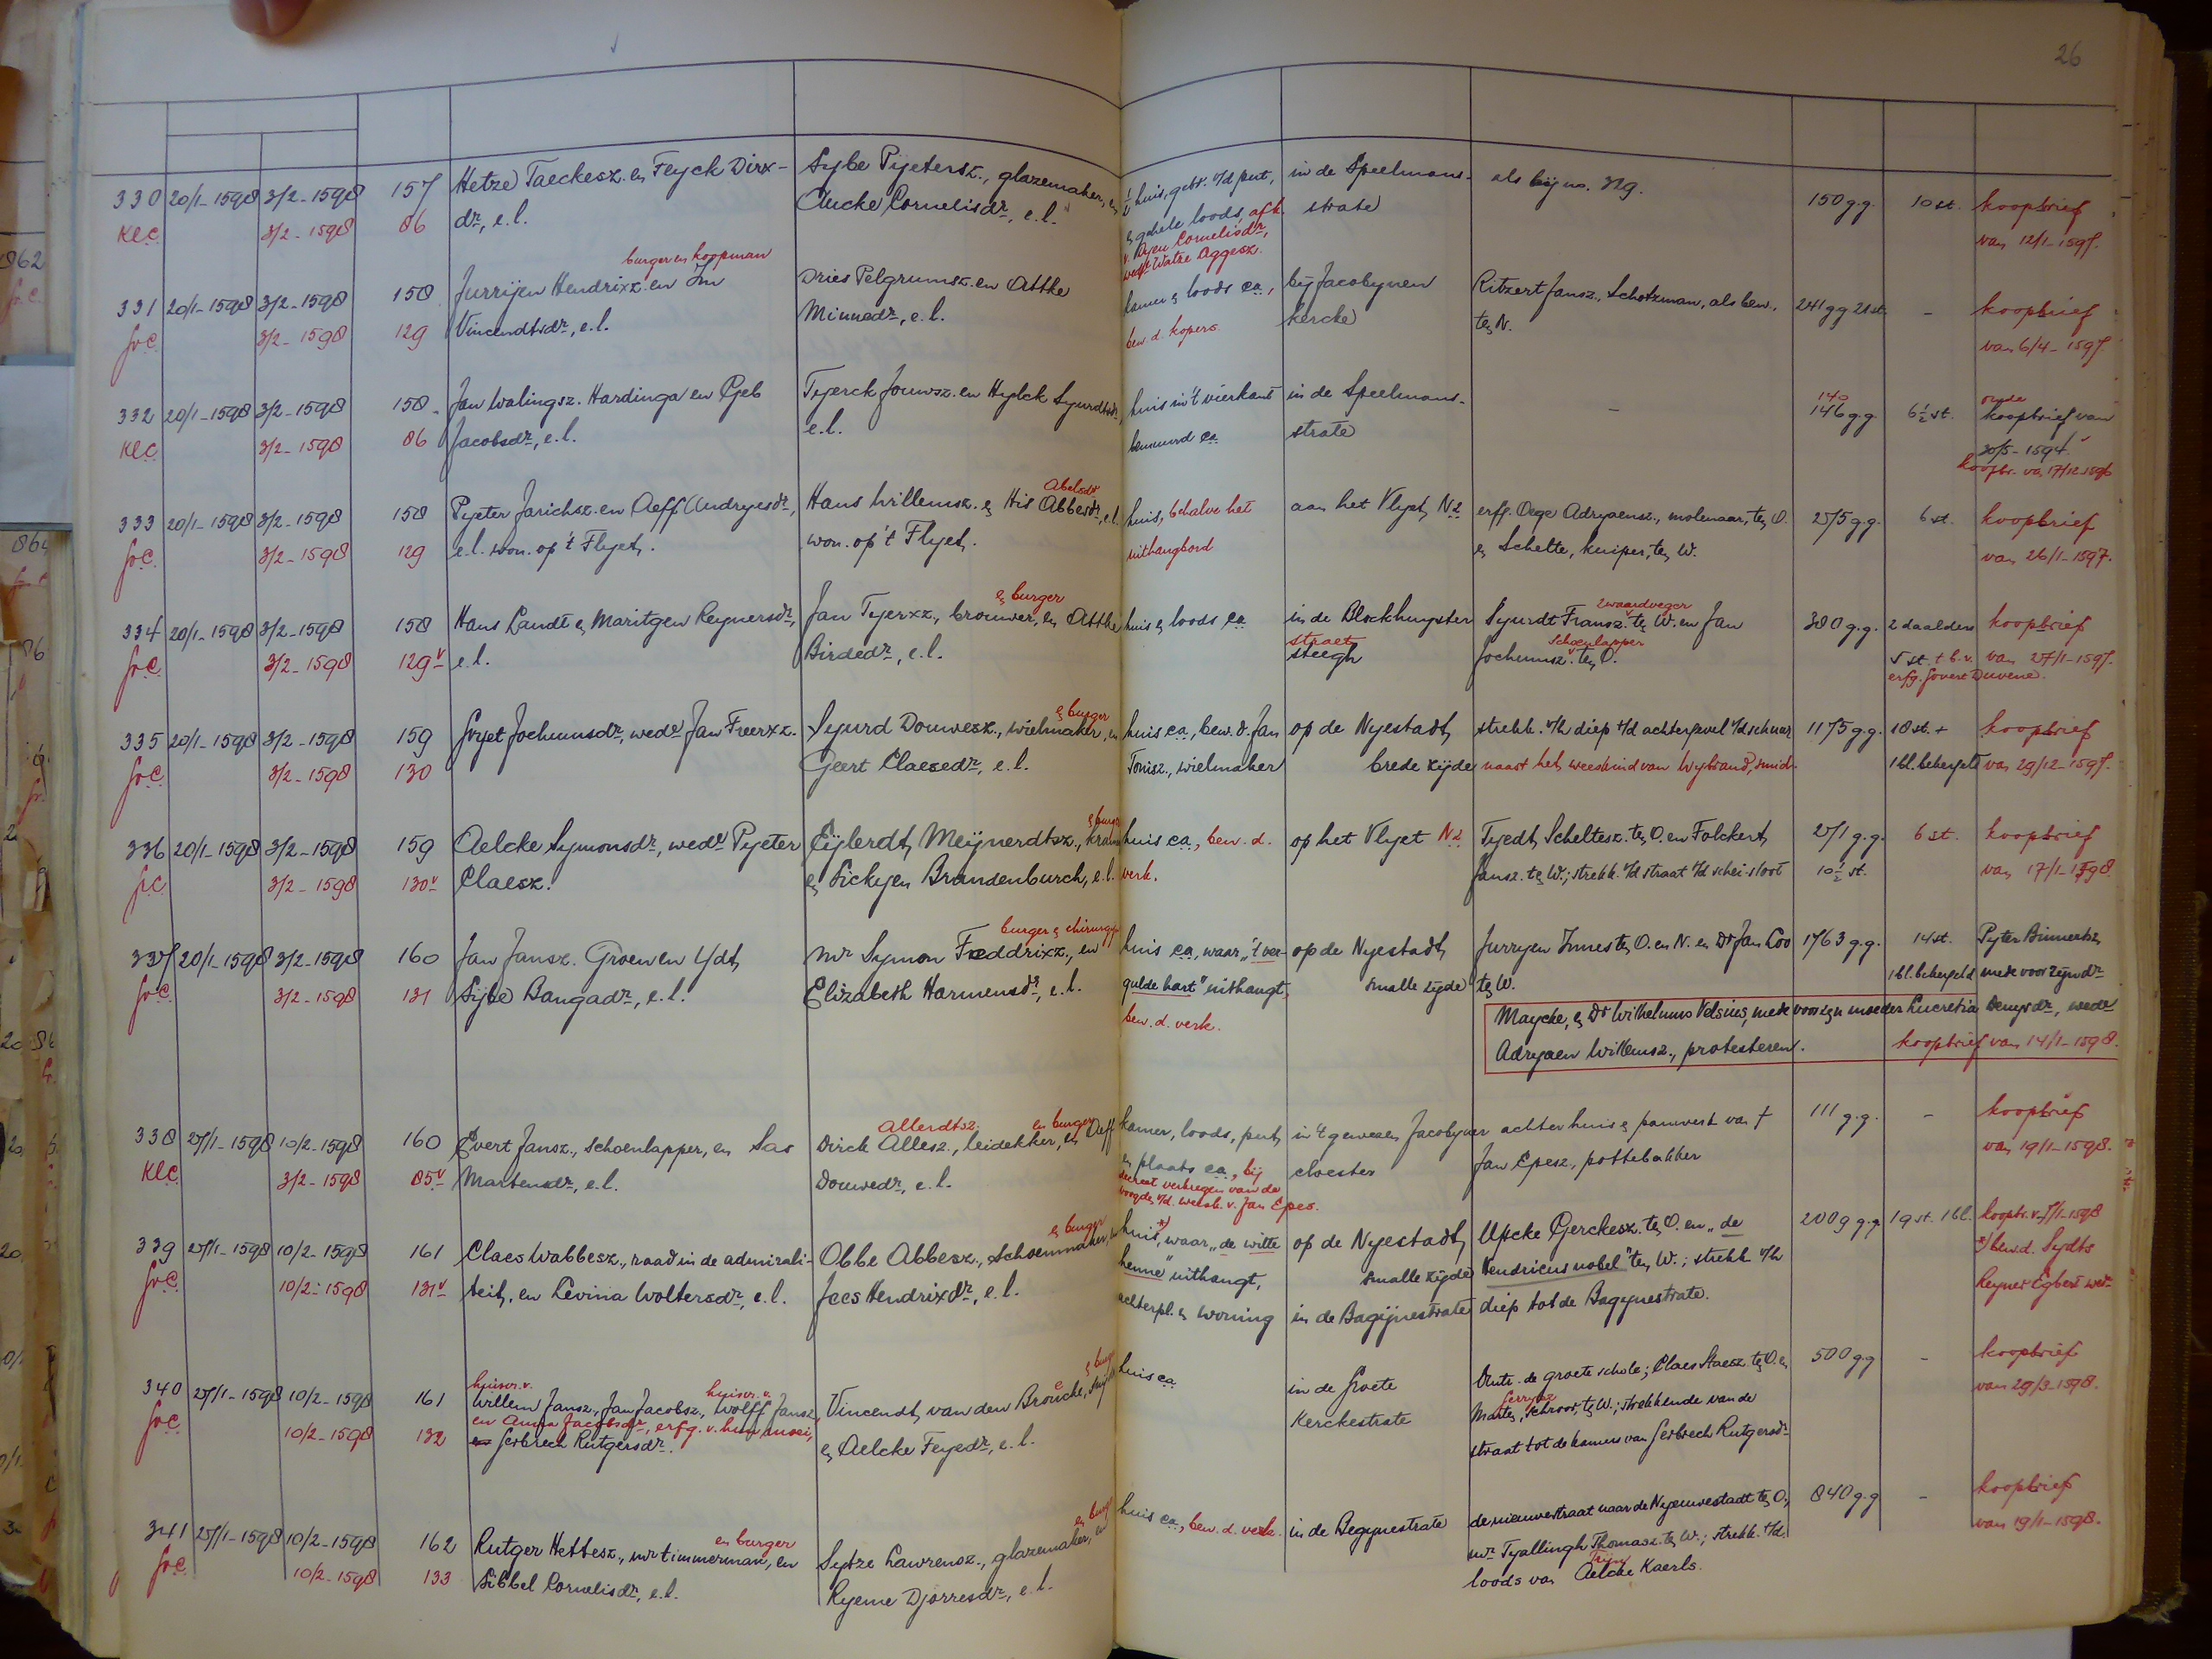 26
330 20/1-1598 3/2-1598 157 Hetze Taeckesz. en Feyck Dirx- Sybe Pijetersz., glazemaker, en ½ huis, gebr. v/d put, in de Speelmans- als bij no. 329. 150 g.g. 10 st. koopbrief
KLC 3/2-1598 86 dr, e.l. Aucke Cornelisdr, e.l. & gehele loods, afk. strate van 12/1-1597.
v. Ryeu Cornelisdr,
wed. Watze Aggesz.
burger en koopman
331 20/1-1598 3/2-1598 158 Jurrijen Hendrixz. en Im Dries Pelgrumsz. en Attke kamer & loods ca, bij Jacobynen Ritzert Jansz., Schotzman, als bew. 241 gg 21 st. - koopbrief
GrC. 3/2-1598 129 Vincendtsdr, e.l. Minnedr, e.l. bew. d. kopers kercke ten N. van 6/4-1597.
140 oude
332 20/1-1598 3/2-1598 158 Jan Walingsz. Hardinga en Geb Tyerck Jouwsz. en Hylck Syurdtsdr, huis in 't vierkant in de Speelmans- - 146 g.g. 6½ st. koopbrief van
KLC 3/2-1598 86 Jacobsdr, e.l. e.l. bemuurd ca strate 30/5-1594.
koopbr. van 17/12-1596
Abelsdr
333 20/1-1598 3/2-1598 158 Pyeter Jarichsz. en Aeff Andryesdr, Hans Willemsz. & His Abbesdr, e.l. huis, behalve het aan het Vlyet, NZ erfg. Oege Adryaensz., molenaar, ten O. 275 g.g. 6 st. koopbrief
GrC. 3/2-1598 129 e.l. won. op 't Flyet. won. op 't Flyet. uithangbord & Schelte, kuiper, ten W. van 26/1-1597.
& burger zwaardveger
334 20/1-1598 3/2-1598 158 Hans Landt & Maritgen Reynersdr, Jan Tyerxz., brouwer, en Attke huis & loods ca in de Blockhuyster Syurdt Fransz. ten W. en Jan 380 g.g. 2 daalders koopbrief
straet schoenlapper
GrC. 3/2-1598 129v e.l. Birdedr, e.l. steegh Jochumsz. ten O. 5 st. t.b.v. van 27/1-1597.
erfg. Govert Duvene.
& burger
335 20/1-1598 3/2-1598 159 Gryet Jochumsdr, wede Jan Freerxz. Syurd Douwesz., wielmaker, en huis ca, bew. d. Jan op de Nyestadt, strekk. v/h diep t/d achtergevel v/d schuur 1175 g.g. 18 st. + koopbrief
GrC. 3/2-1598 130 Geert Claesedr, e.l. Tonisz., wielmaker brede zyde naast het weeskind van Wybrand, smid. 1 bl. behergeld van 29/12-1597.
& burger
336 20/1-1598 3/2-1598 159 Aelcke Symonsdr, wede Pyeter Eylerdt Meijnerdtsz., kramer huis ca, bew. d. op het Vlyet NZ Tyedt Scheltesz. ten O. en Folckert 271 g.g. 6 st. koopbrief
GrC 3/2-1598 130v Claesz. & Sickyen Brandenburch, e.l. verk. Jansz. ten W.; strekk. v/d straat t/d schei-sloot 10½ st. van 17/1-1598.
burger & chirurgijn
337 20/1-1598 3/2-1598 160 Jan Jansz. Groen en Ydt, mr Symon Freddrixz., en huis ca, waar „'t ver- op de Nyestadt, Jurryen Innes ten O. en N. en Dr Jan Loo 1763 g.g. 14 st. Pyter Binnertsz.
GrC. 3/2-1598 131 Sijbe Bangadr, e.l. Elizabeth Harmensdr, e.l. gulde hart" uithangt, smalle zijde ten W. 1 bl. behergeld mede voor zijn dr
bew. d. verk. Maycke, & Dr Wilhelmus Velsius, mede voor zijn moeder Lucretia Denysdr, wede
Adryaen Willemsz., protesteren. koopbrief van 14/1-1598.
Allerdtsz. en burger
338 27/1-1598 10/2-1598 160 Evert Jansz., schoenlapper, en Sas Dirck Allesz., leidekker, en Aeff kamer, loods, put, in 't gewesen Jacobyner achter huis & pauwert van † 111 g.g. - koopbrief
KLC 3/2-1598 85v Martensdr, e.l. Douwedr, e.l. en plaats ca, bij cloester Jan Epesz., pottebakker van 19/1-1598.
decreet verkregen van de
voogden v/d weesk. v. Jan Epes.
& burger
339 27/1-1598 10/2-1598 161 Claes Wabbesz., raad in de admirali- Obbe Abbesz., schoenmaker, en huis*), waar „de witte op de Nyestadt, Upcke Gerckesz. ten O. en „de 2009 g.g. 19 st. 1 bl. koopbr. v. 7/1-1598
GrC. 10/2-1598 131v teit, en Levina Woltersdr, e.l. Jees Hendrixdr, e.l. henne" uithangt, smalle zijde Hendricus nobel" ten W.; strekk. v/h *) bew. d. Sydts
achterpl. & woning in de Bagijnestrate diep tot de Bagynestrate. Reyner Egberts wed.
huisvr. v. huisvr. v. & burger
340 27/1-1598 10/2-1598 161 Willem Jansz., Jan Jacobsz., Wolff Jansz., Vincendt van den Broucke, huis ca in de Groete t.o. de groete schole; Claes Staesz. ten O. en 500 gg - koopbrief
GrC. 10/2-1598 132 en Anna Jacobsdr, erfg. v. hun moei, & Aelcke Feyedr, e.l. Kerckestrate Marten, schroor, ten W.; strekkende van de van 29/3-1598.
en Gerbrech Rutgersdr. straat tot de kamers van Gerbrech Rutgersdr
en burger en burger
341 27/1-1598 10/2-1598 162 Rutger Hettesz., mr timmerman, en Sytze Lawrensz., glazemaker, en huis ca, bew. d. verk. in de Begynestrate de nieuwestraat naar de Nyeuwestadt ten O., 840 g.g - koopbrief
GrC. 10/2-1598 133 Sibbel Cornelisdr, e.l. Ryeme Djorresdr, e.l. mr Tyallingh Thomasz. ten W.; strekk. t/d van 19/1-1598.
Tryn
loods van Aelcke Kaerls.